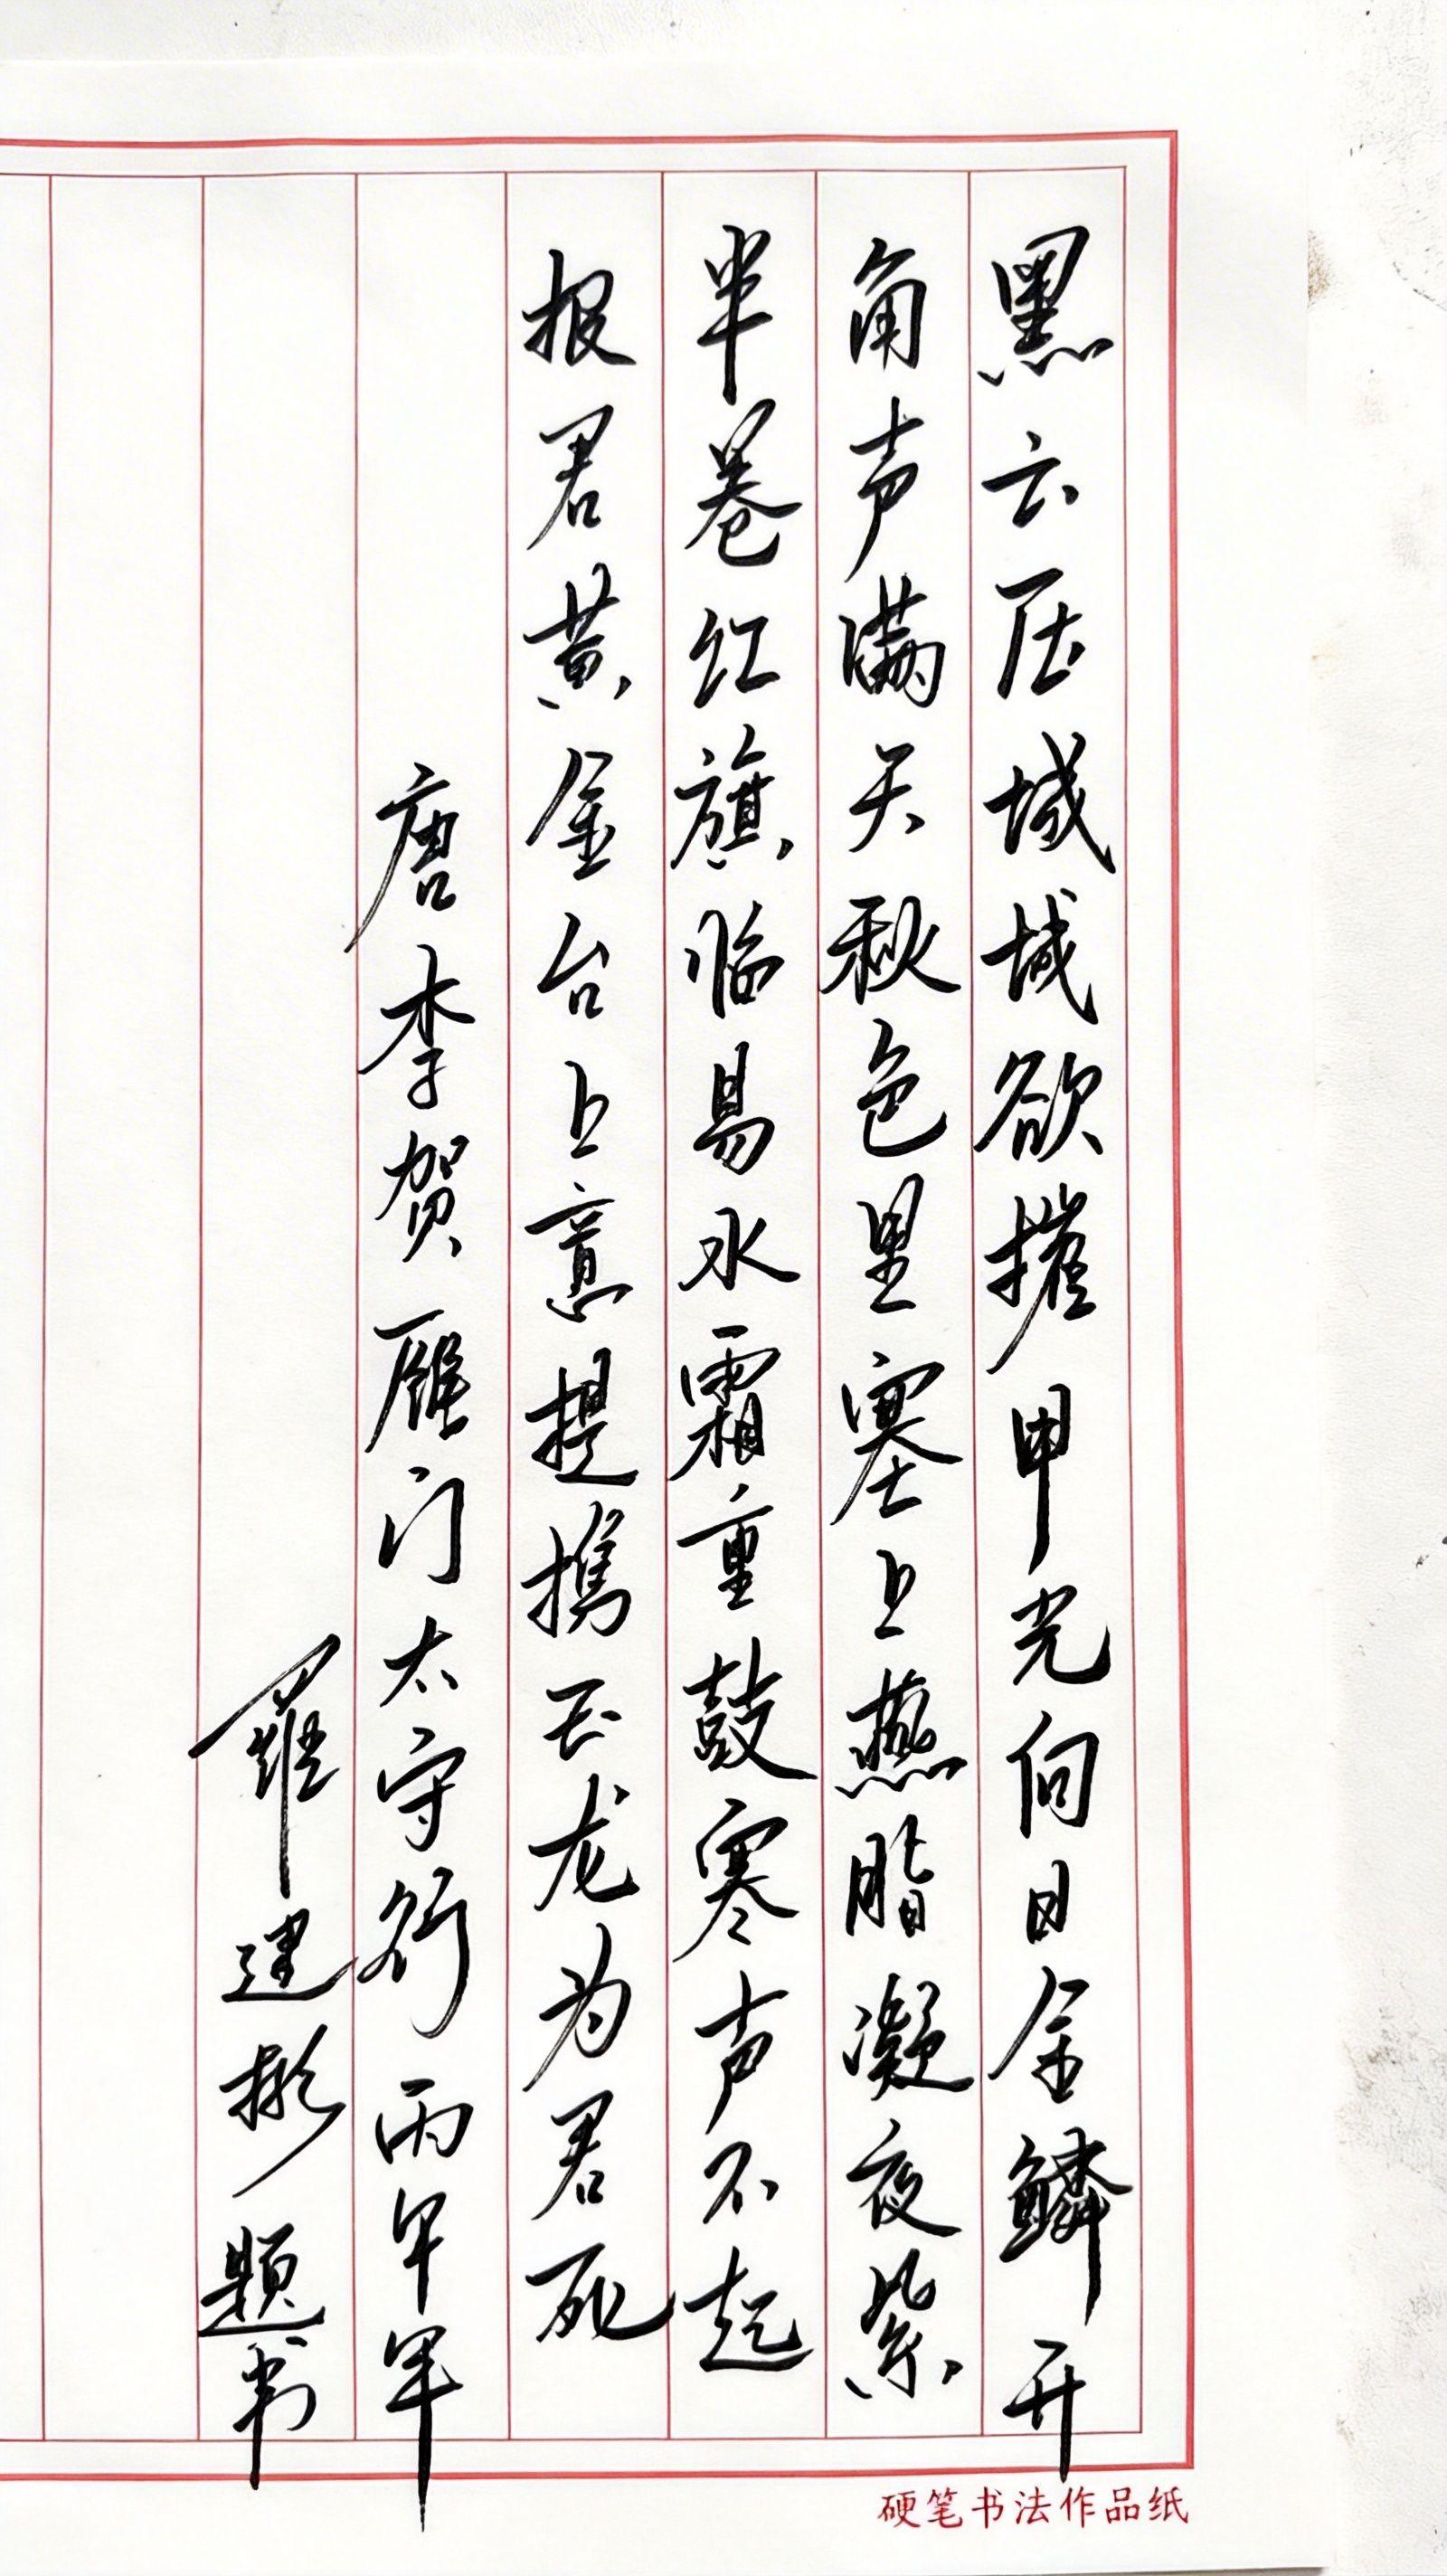 黑云压城城欲摧甲光向日金鳞开
角声满天秋色里塞上燕脂凝夜紫
半卷红旗临易水霜重鼓寒声不起
报君黄金台上意提携玉龙为君死
唐李贺雁门太守行丙午年
罗建彬题书
硬笔书法作品纸